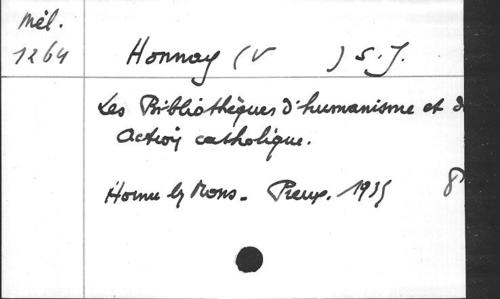 Mél.
1264
Honnay (V ) S.J.
Les Bibliothèques d'humanisme et d
Action catholique.
Hornu lg Mons. Preux. 1935 8°